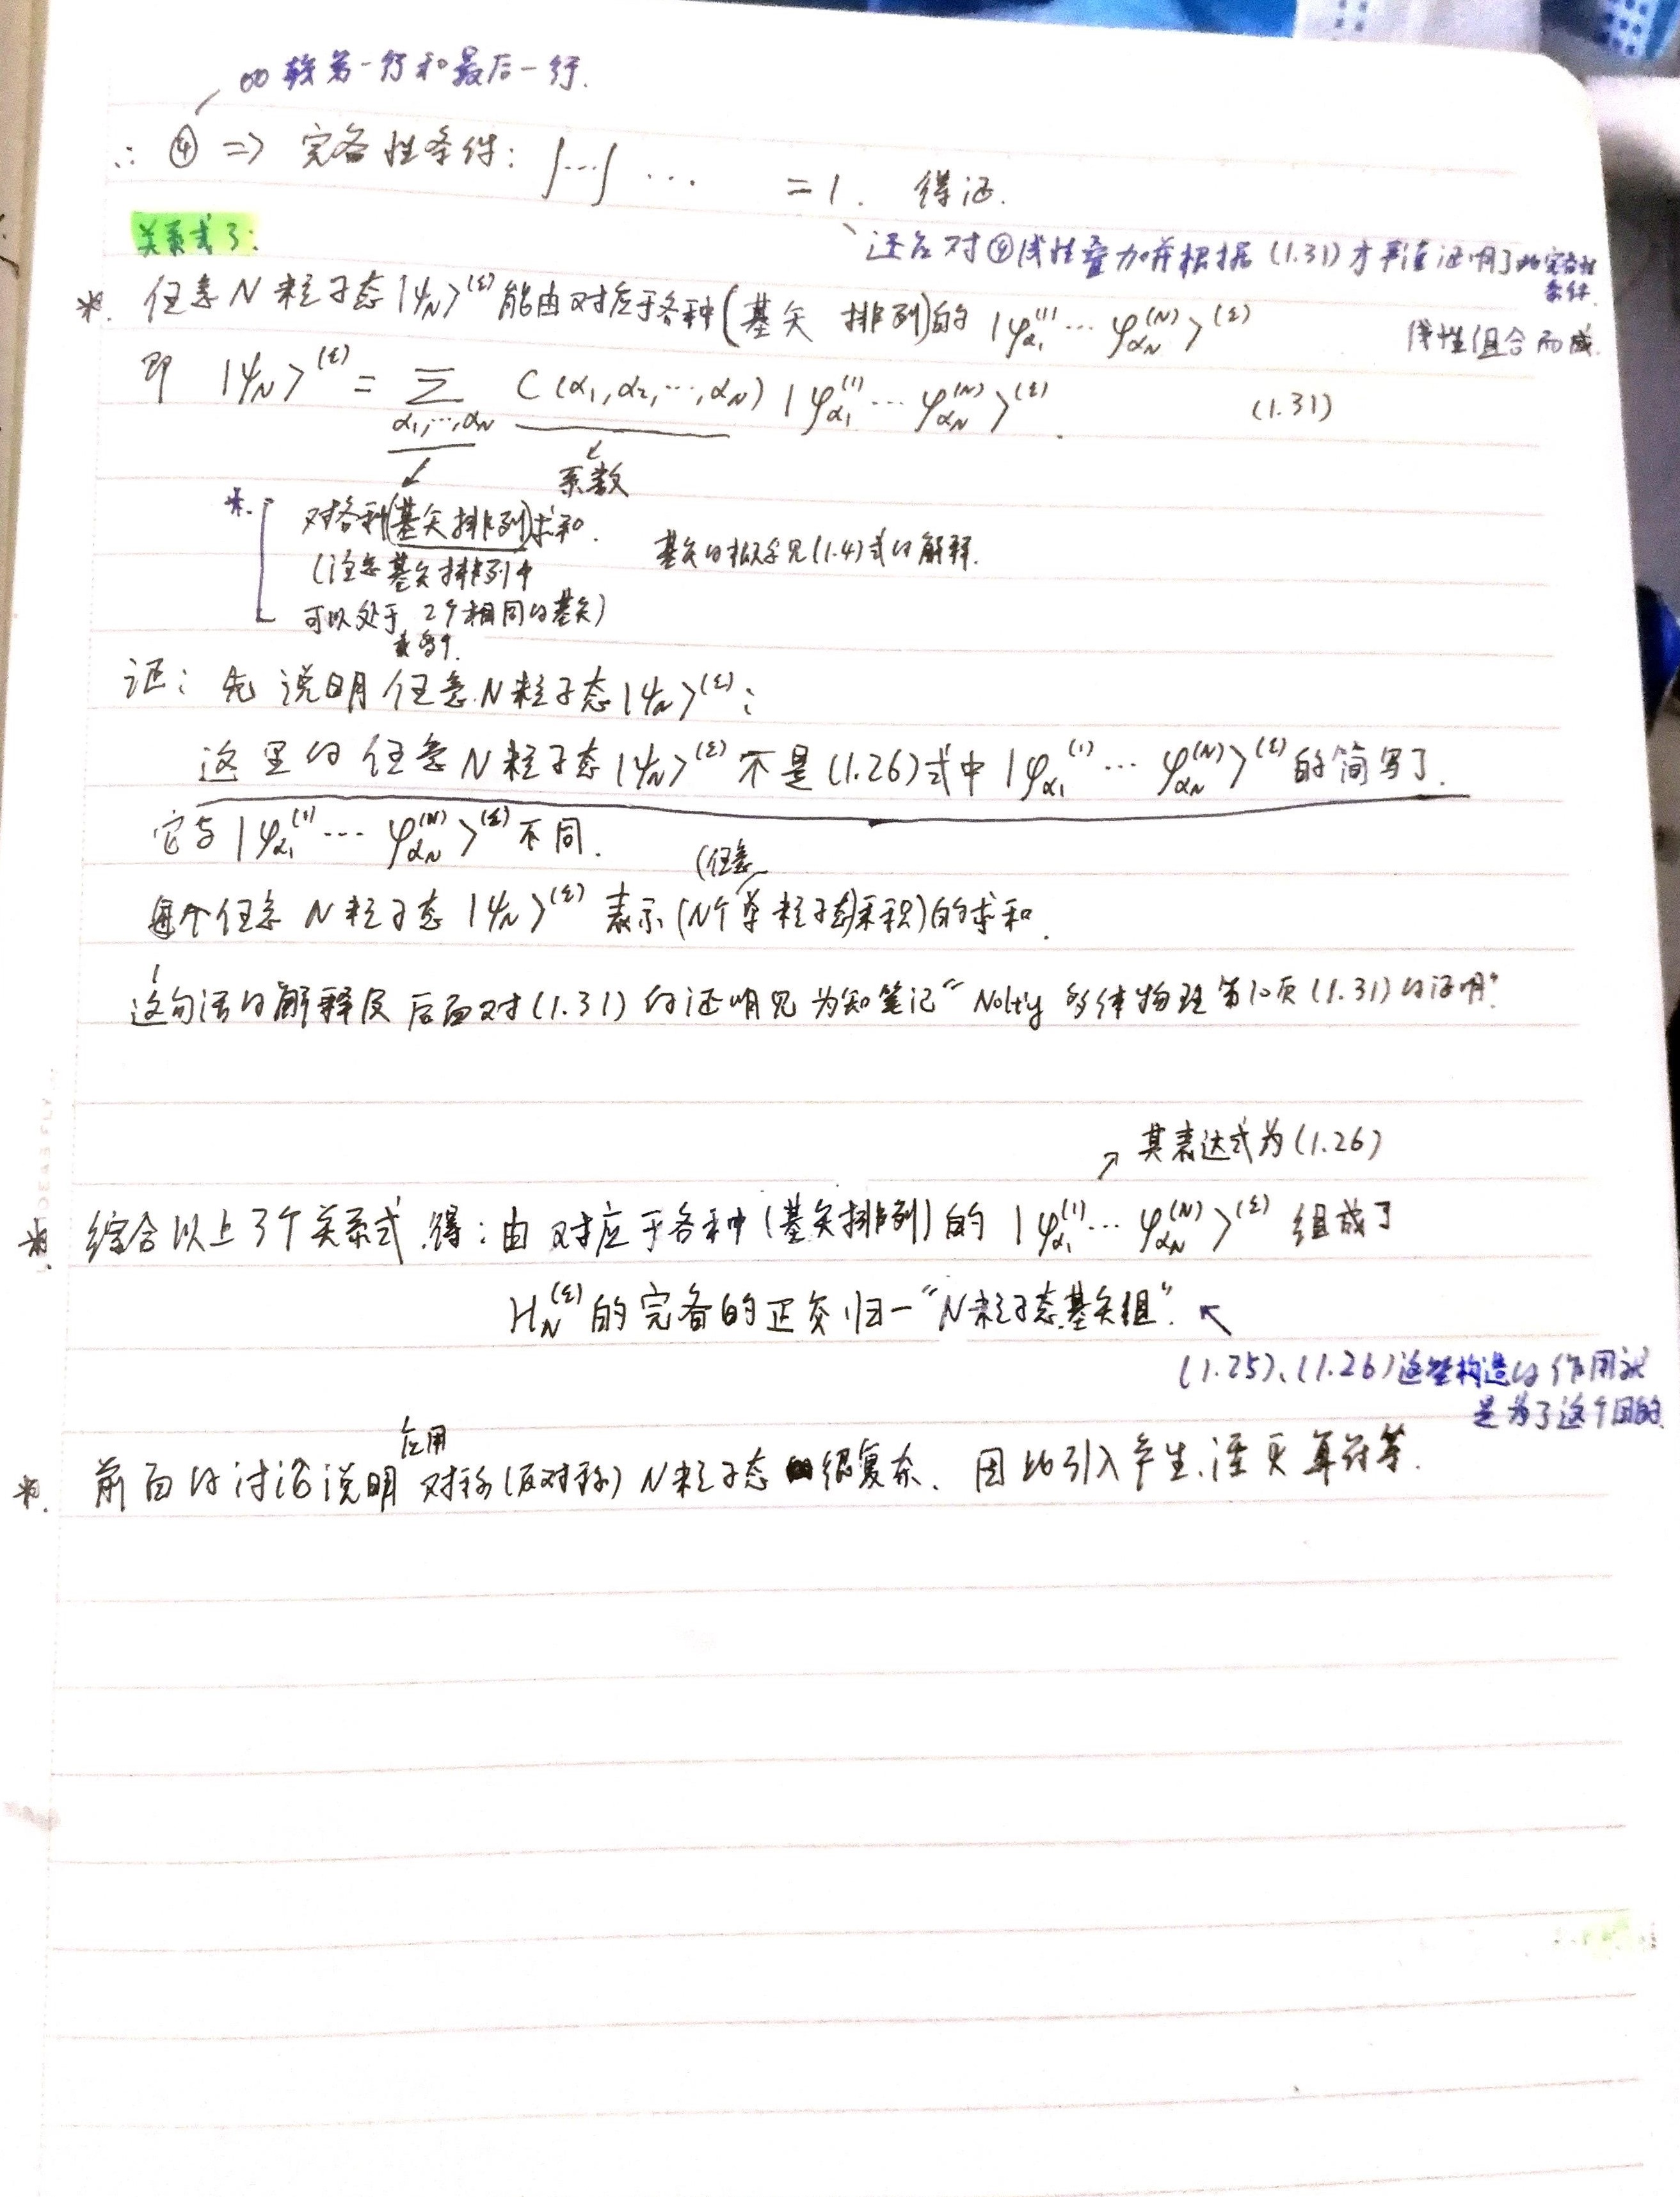 较第一行和最后一行.
∴ ④ => 完备性条件: ∫…∫ … = 1. 得证.
关系式3:
还应对④线性叠加并根据(1.31)才严谨证明了此完备性条件.
*. 任意N粒子态|ψ_N>^(ε)能由对应于各种(基矢 排列)的 |φ_α1^(1) … φ_αN^(N)>^(ε) 线性组合而成.
即 |ψ_N>^(ε) = Σ_{α1,…,αN} C(α1,α2,…,αN) |φ_α1^(1) … φ_αN^(N)>^(ε). (1.31)
系数
*. 对各种(基矢排列)求和.
(注意基矢排列中
基矢的概念见(1.4)式的解释.
可以处于 2个相同的基矢)
或多个.
证: 先说明任意N粒子态|ψ_N>^(ε):
这里的任意N粒子态|ψ_N>^(ε)不是(1.26)式中|φ_α1^(1) … φ_αN^(N)>^(ε)的简写了.
它与|φ_α1^(1) … φ_αN^(N)>^(ε)不同.
(任意
每个任意N粒子态|ψ_N>^(ε)表示(N个单粒子态)乘积)的求和.
这句话的解释及后面对(1.31)的证明见为知笔记"Nolty多体物理第10页(1.31)的证明"
其表达式为(1.26)
*. 综合以上3个关系式,得: 由对应于各种(基矢排列)的 |φ_α1^(1) … φ_αN^(N)>^(ε) 组成了
H_N^(ε)的完备的正交归一"N粒子态基矢组".
(1.25)、(1.26)这些构造的作用就
是为了这个目的
应用
*. 前面的讨论说明对称(反对称)N粒子态很复杂、因此引入产生、湮灭算符等.